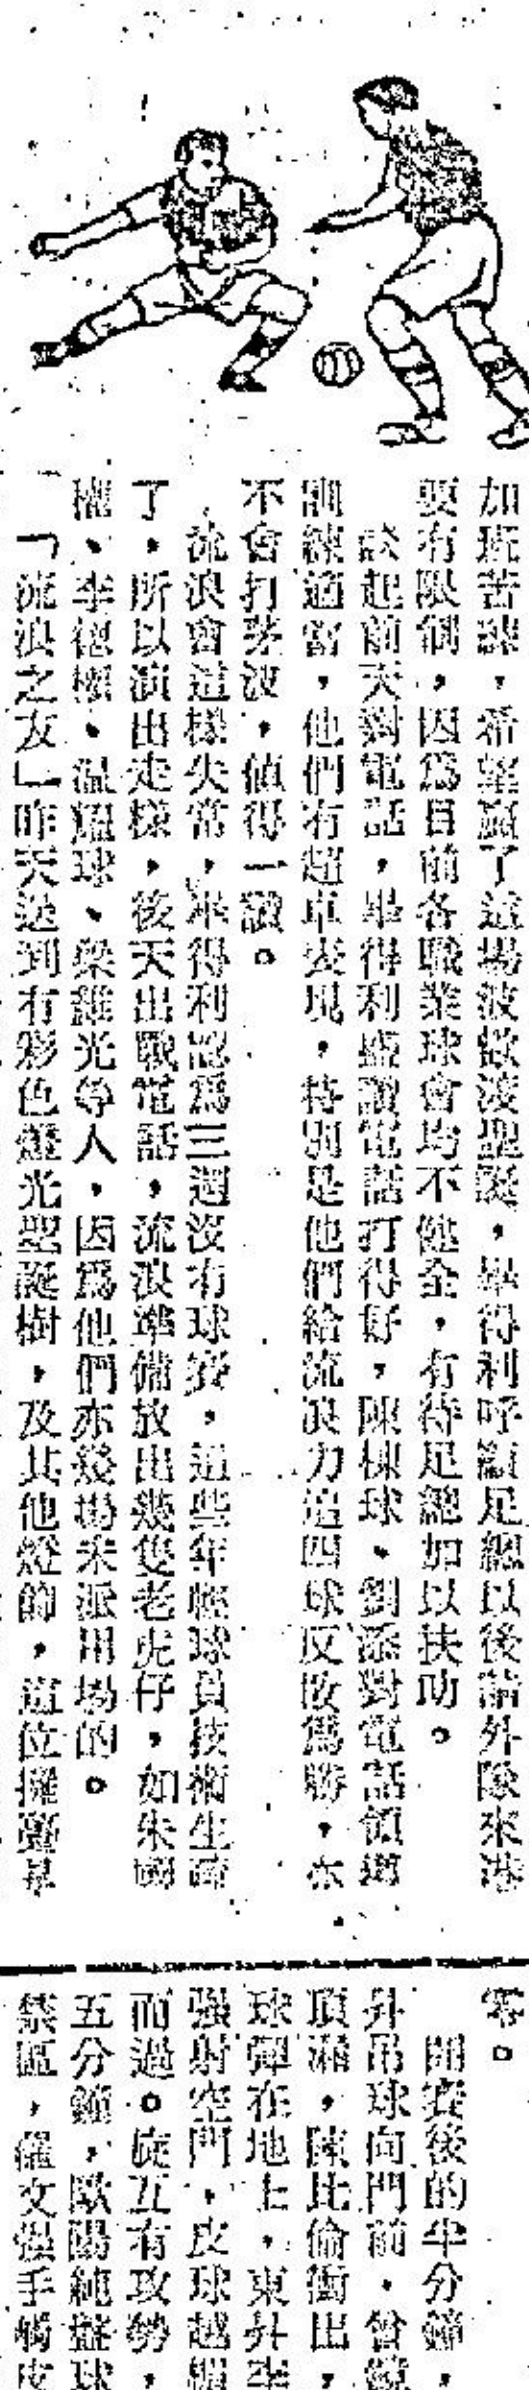 加班苦練，希望贏了這場波歡渡聖誕，畢得利呼籲足總以後請外隊來港
要有限制，因爲目前各職業球會均不健全，有待足總加以扶助。
談起前天對電話，畢得利盛讚電話打得好，陳棟球、劉添對電話領導
訓練適當，他們有超卓表現，特別是他們給流浪力追四球反敗爲勝，亦
不會打茅波，值得一讚。
流浪會這樣失常，畢得利認爲三週沒有球賽，這些年輕球員技術生疏
了，所以演出走樣，後天出戰電話，流浪準備放出幾隻老虎仔，如朱國
權、李德權、温耀球、梁維光等人，因爲他們亦幾場未派用場的。
「流浪之友」昨天送到有彩色燈光聖誕樹，及其他燈飾，這位擁躉是
零。
開賽後的半分鐘，
升吊球向門前，曾鏡
頂漏，陳比倫衝出，
球彈在地上，東升李
強射空門，皮球越楣
而過。旋互有攻勢，
五分鐘，歐陽純盤球
禁區，羅文強手觸皮